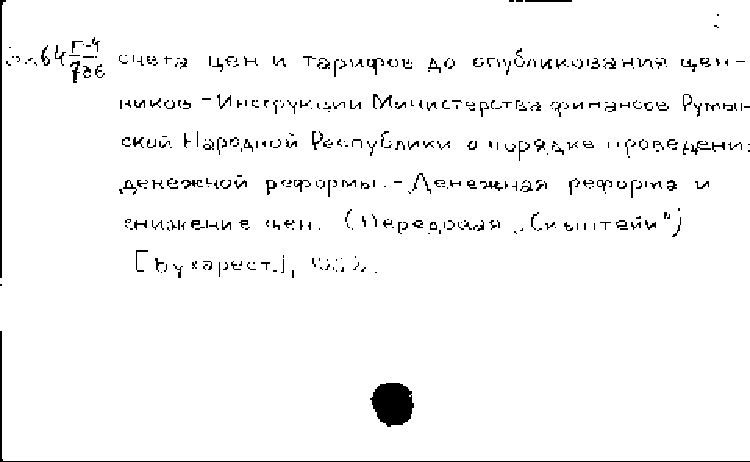 счета цен и тарифов до опубликования цен-
ников - Инструкции Министерства финансов Румын-
ской Народной Республики о порядке проведени
денежной реформы. - Денежная реформа и
снижение цен. (Передовая „Скынтейи")
[Бухарест],